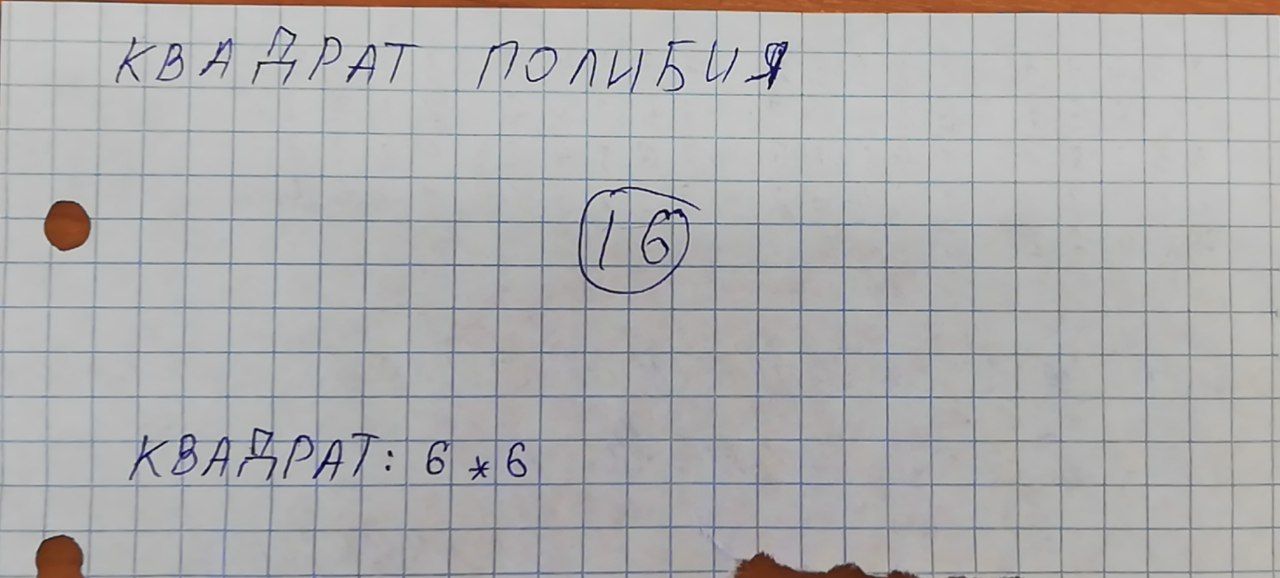 КВАДРАТ ПОЛИБИЯ
16
КВАДРАТ: 6 * 6